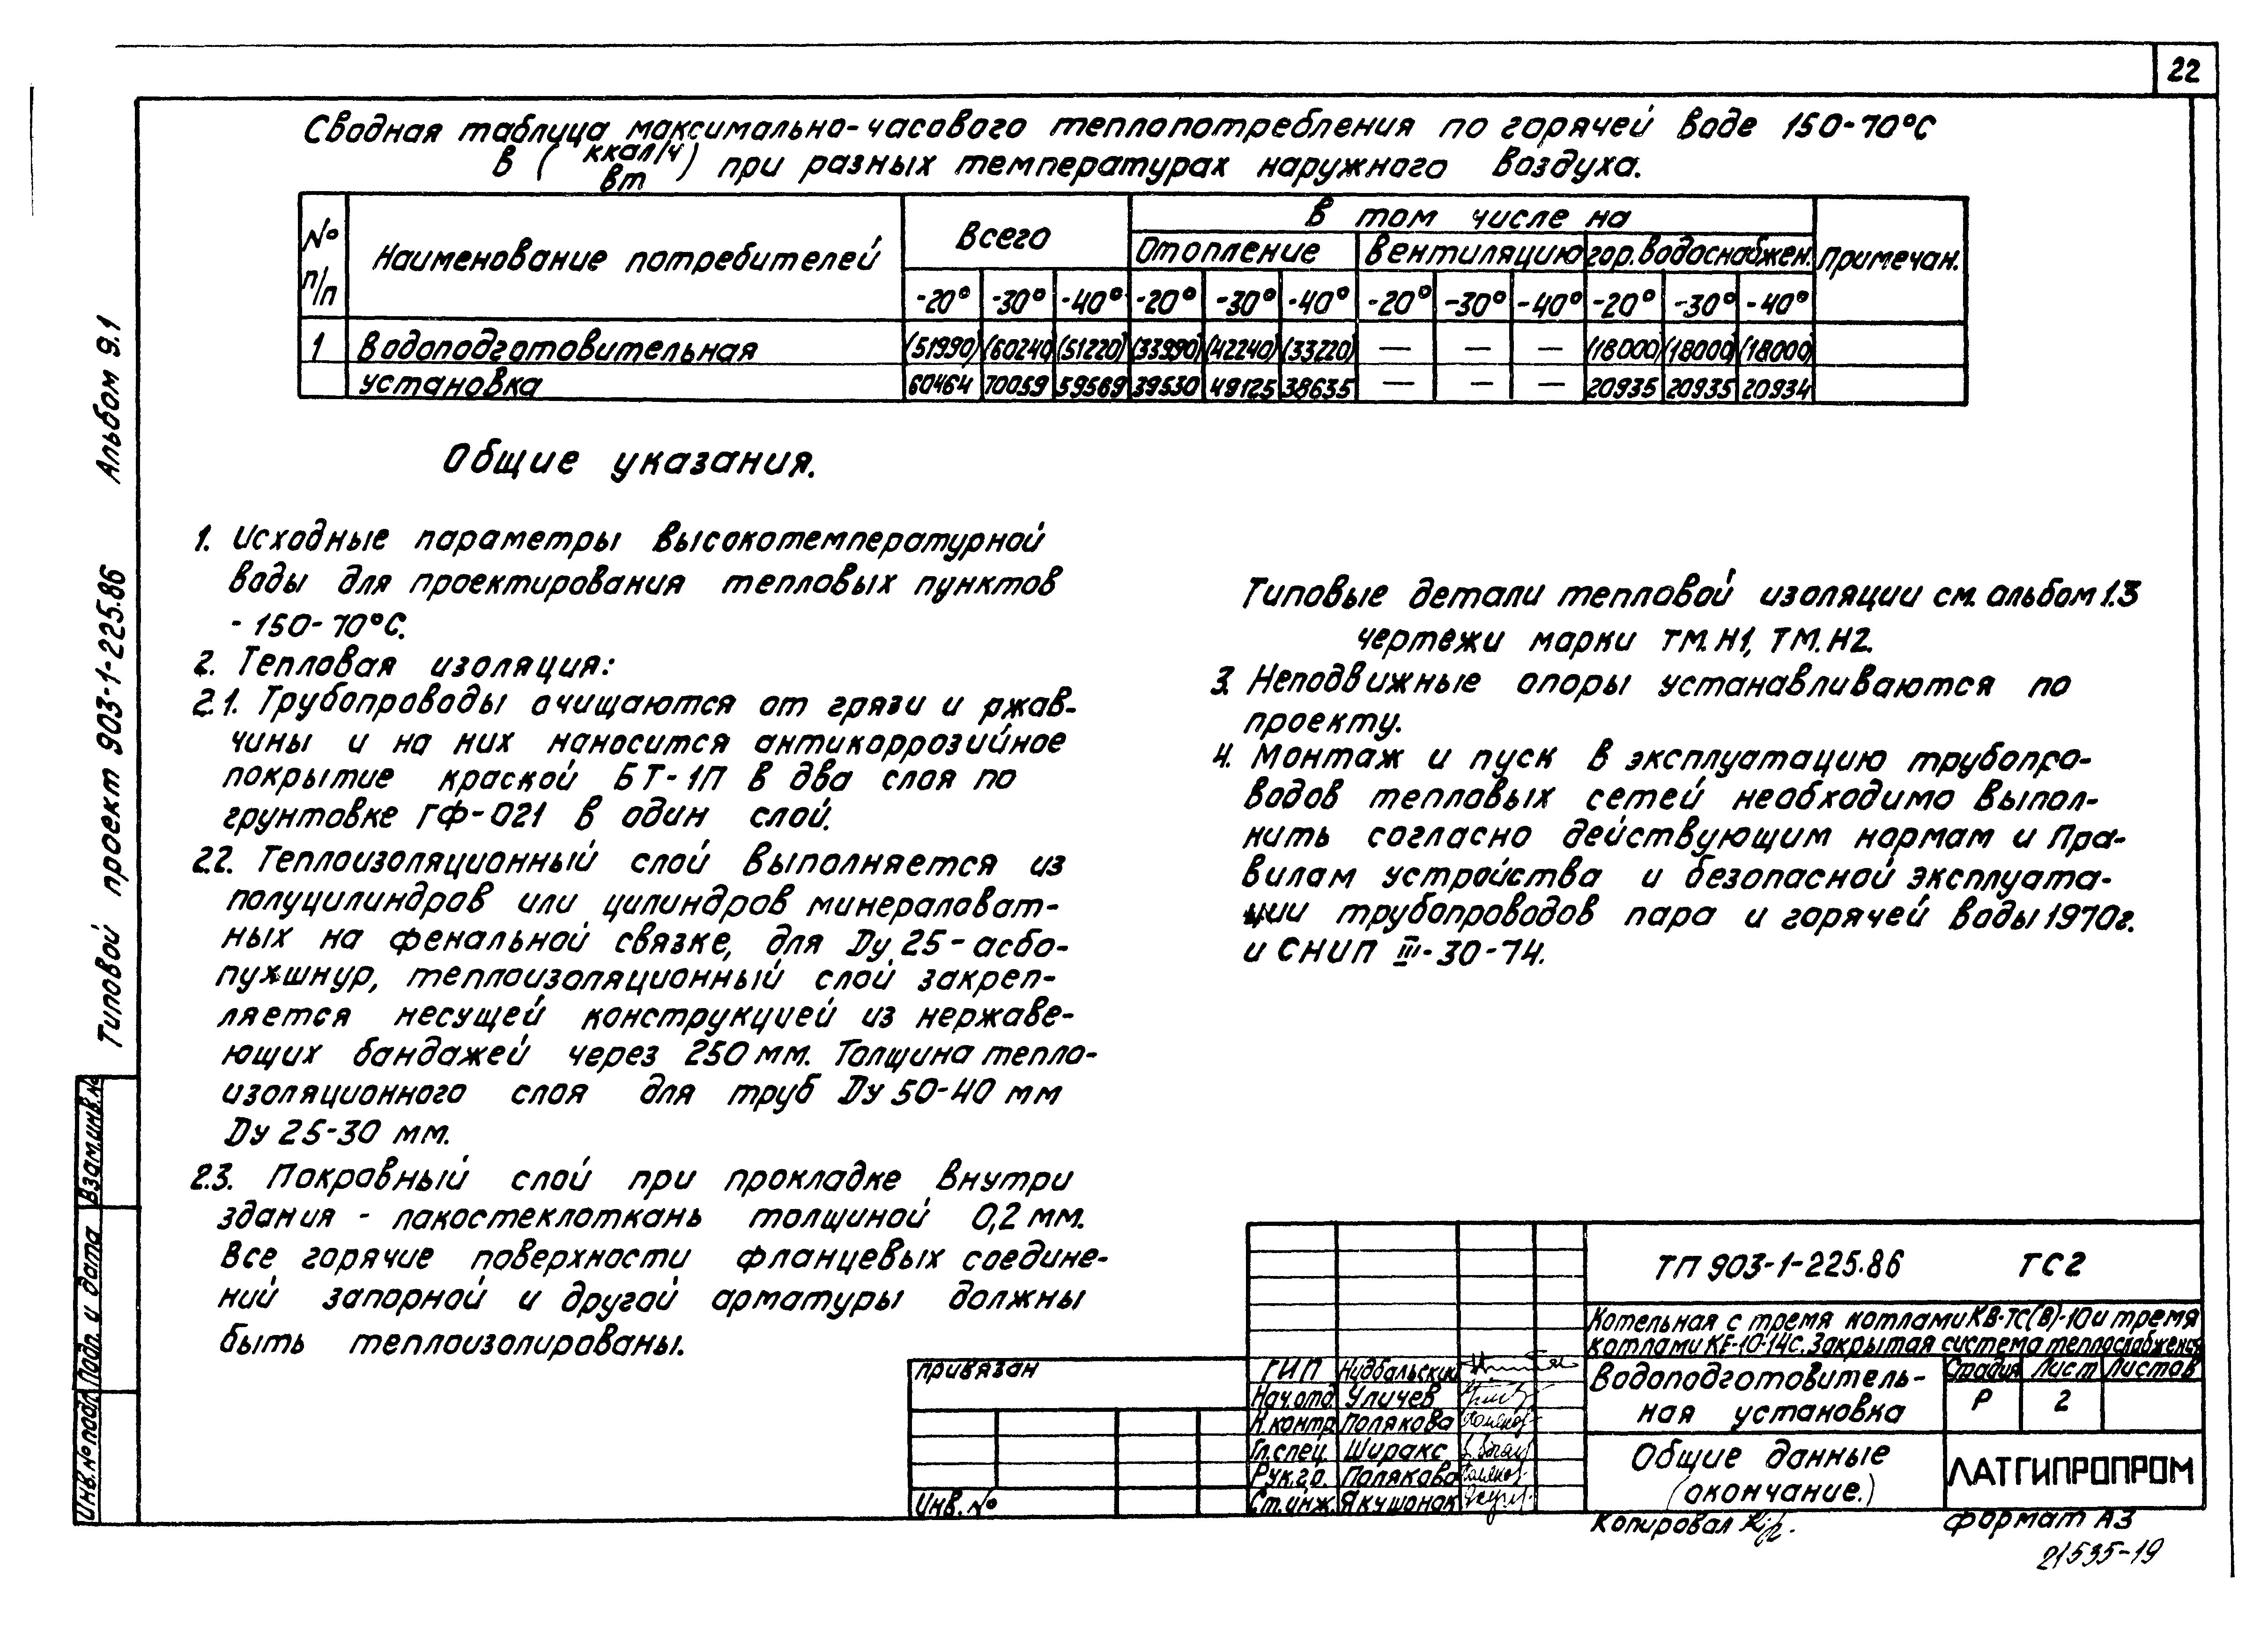 22
Сводная таблица максимально-часового теплопотребления по горячей воде 150-70°С
в ( ккал/ч / вт ) при разных температурах наружного воздуха.
№ п/п Наименование потребителей Всего В том числе на Примечан.
Отопление Вентиляцию гор.водоснабжен.
-20° -30° -40° -20° -30° -40° -20° -30° -40° -20° -30° -40°
1 Водоподготовительная (51990) (60240) (51220) (33990) (42240) (33220) — — — (18000) (18000) (18000)
установка 60464 70059 59569 39530 49125 38635 — — — 20935 20935 20934
Общие указания.
1. Исходные параметры высокотемпературной
воды для проектирования тепловых пунктов
- 150-70°С.
2. Тепловая изоляция:
2.1. Трубопроводы очищаются от грязи и ржав-
чины и на них наносится антикоррозийное
покрытие краской БТ-1П в два слоя по
грунтовке ГФ-021 в один слой.
2.2. Теплоизоляционный слой выполняется из
полуцилиндров или цилиндров минераловат-
ных на фенальной связке, для Ду 25-асбо-
пухшнур, теплоизоляционный слой закреп-
ляется несущей конструкцией из нержаве-
ющих бандажей через 250 мм. Толщина тепло-
изоляционного слоя для труб Ду 50-40 мм
Ду 25-30 мм.
2.3. Покровный слой при прокладке внутри
здания - лакостеклоткань толщиной 0,2 мм.
Все горячие поверхности фланцевых соедине-
ний запорной и другой арматуры должны
быть теплоизолированы.
Типовые детали тепловой изоляции см. альбом 1.3
чертежи марки ТМ.Н1, ТМ.Н2.
3. Неподвижные опоры устанавливаются по
проекту.
4. Монтаж и пуск в эксплуатацию трубопро-
водов тепловых сетей необходимо выпол-
нить согласно действующим нормам и Пра-
вилам устройства и безопасной эксплуата-
ции трубопроводов пара и горячей воды 1970г.
и СНИП III-30-74.
Типовой проект 903-1-225.86 Альбом 9.1
Взам.инв.№
Подп. и дата
Инв.№ подл.
Привязан
Инв. №
ГИП Нудбальский
Нач.отд. Уличев
Н.контр. Полякова
Гл.спец. Ширакс
Рук.гр. Полякова
Ст.инж. Якушонок
ТП 903-1-225.86 ТС2
Котельная с тремя котлами КВ-ТС(В)-10 и тремя
котлами КЕ-10-14С. Закрытая система теплоснабжения
Водоподготовитель-
ная установка
Стадия Лист Листов
Р 2
Общие данные
(окончание.)
ЛАТГИПРОПРОМ
Копировал
Формат А3
21535-19